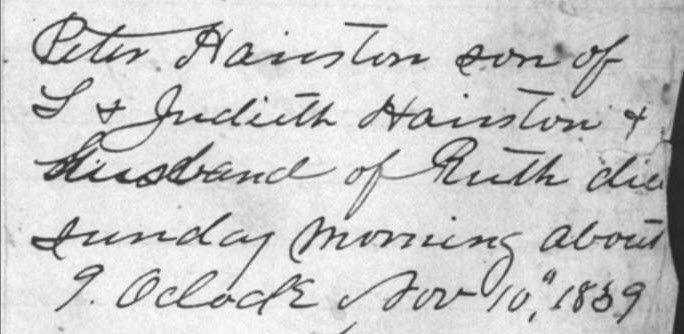 Peter Hairston son of
S & Judieth Hairston &
husband of Ruth die
sunday morning about
9. Oclock Nov 10," 1839